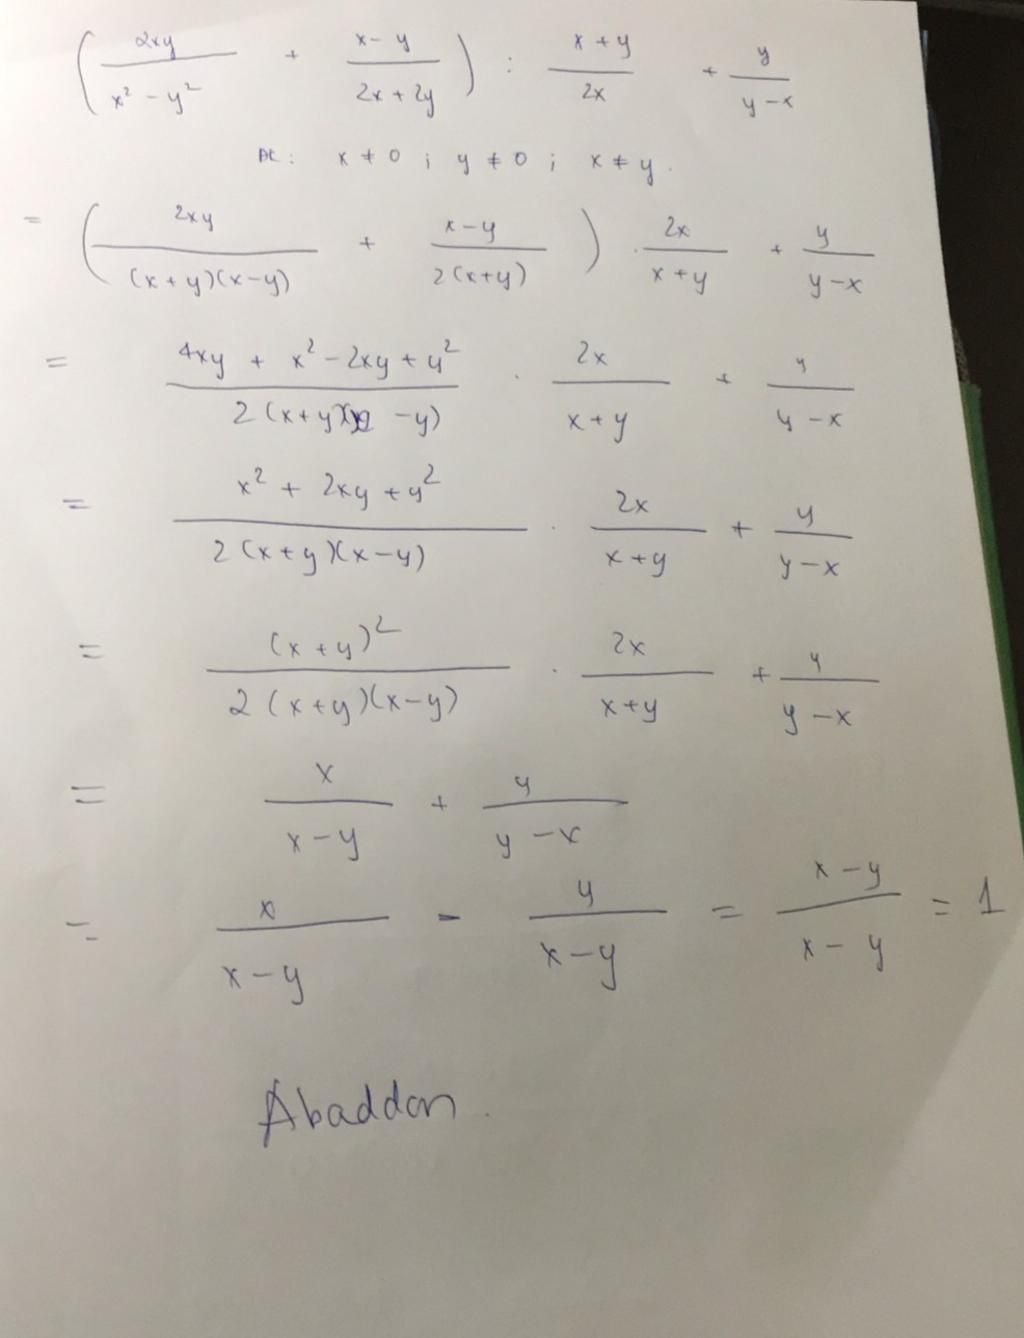 (2xy / x² - y² + x - y / 2x + 2y) : x + y / 2x + y / y - x
ĐK: x ≠ 0 ; y ≠ 0 ; x ≠ y.
= (2xy / (x + y)(x - y) + x - y / 2(x+y)) . 2x / x + y + y / y - x
= 4xy + x² - 2xy + y² / 2(x+y)( - y) . 2x / x + y + y / y - x
= x² + 2xy + y² / 2(x+y)(x-y) . 2x / x+y + y / y-x
= (x + y)² / 2(x+y)(x-y) . 2x / x+y + y / y-x
= x / x-y + y / y-x
= x / x-y - y / x-y = x-y / x-y = 1
Abaddon.